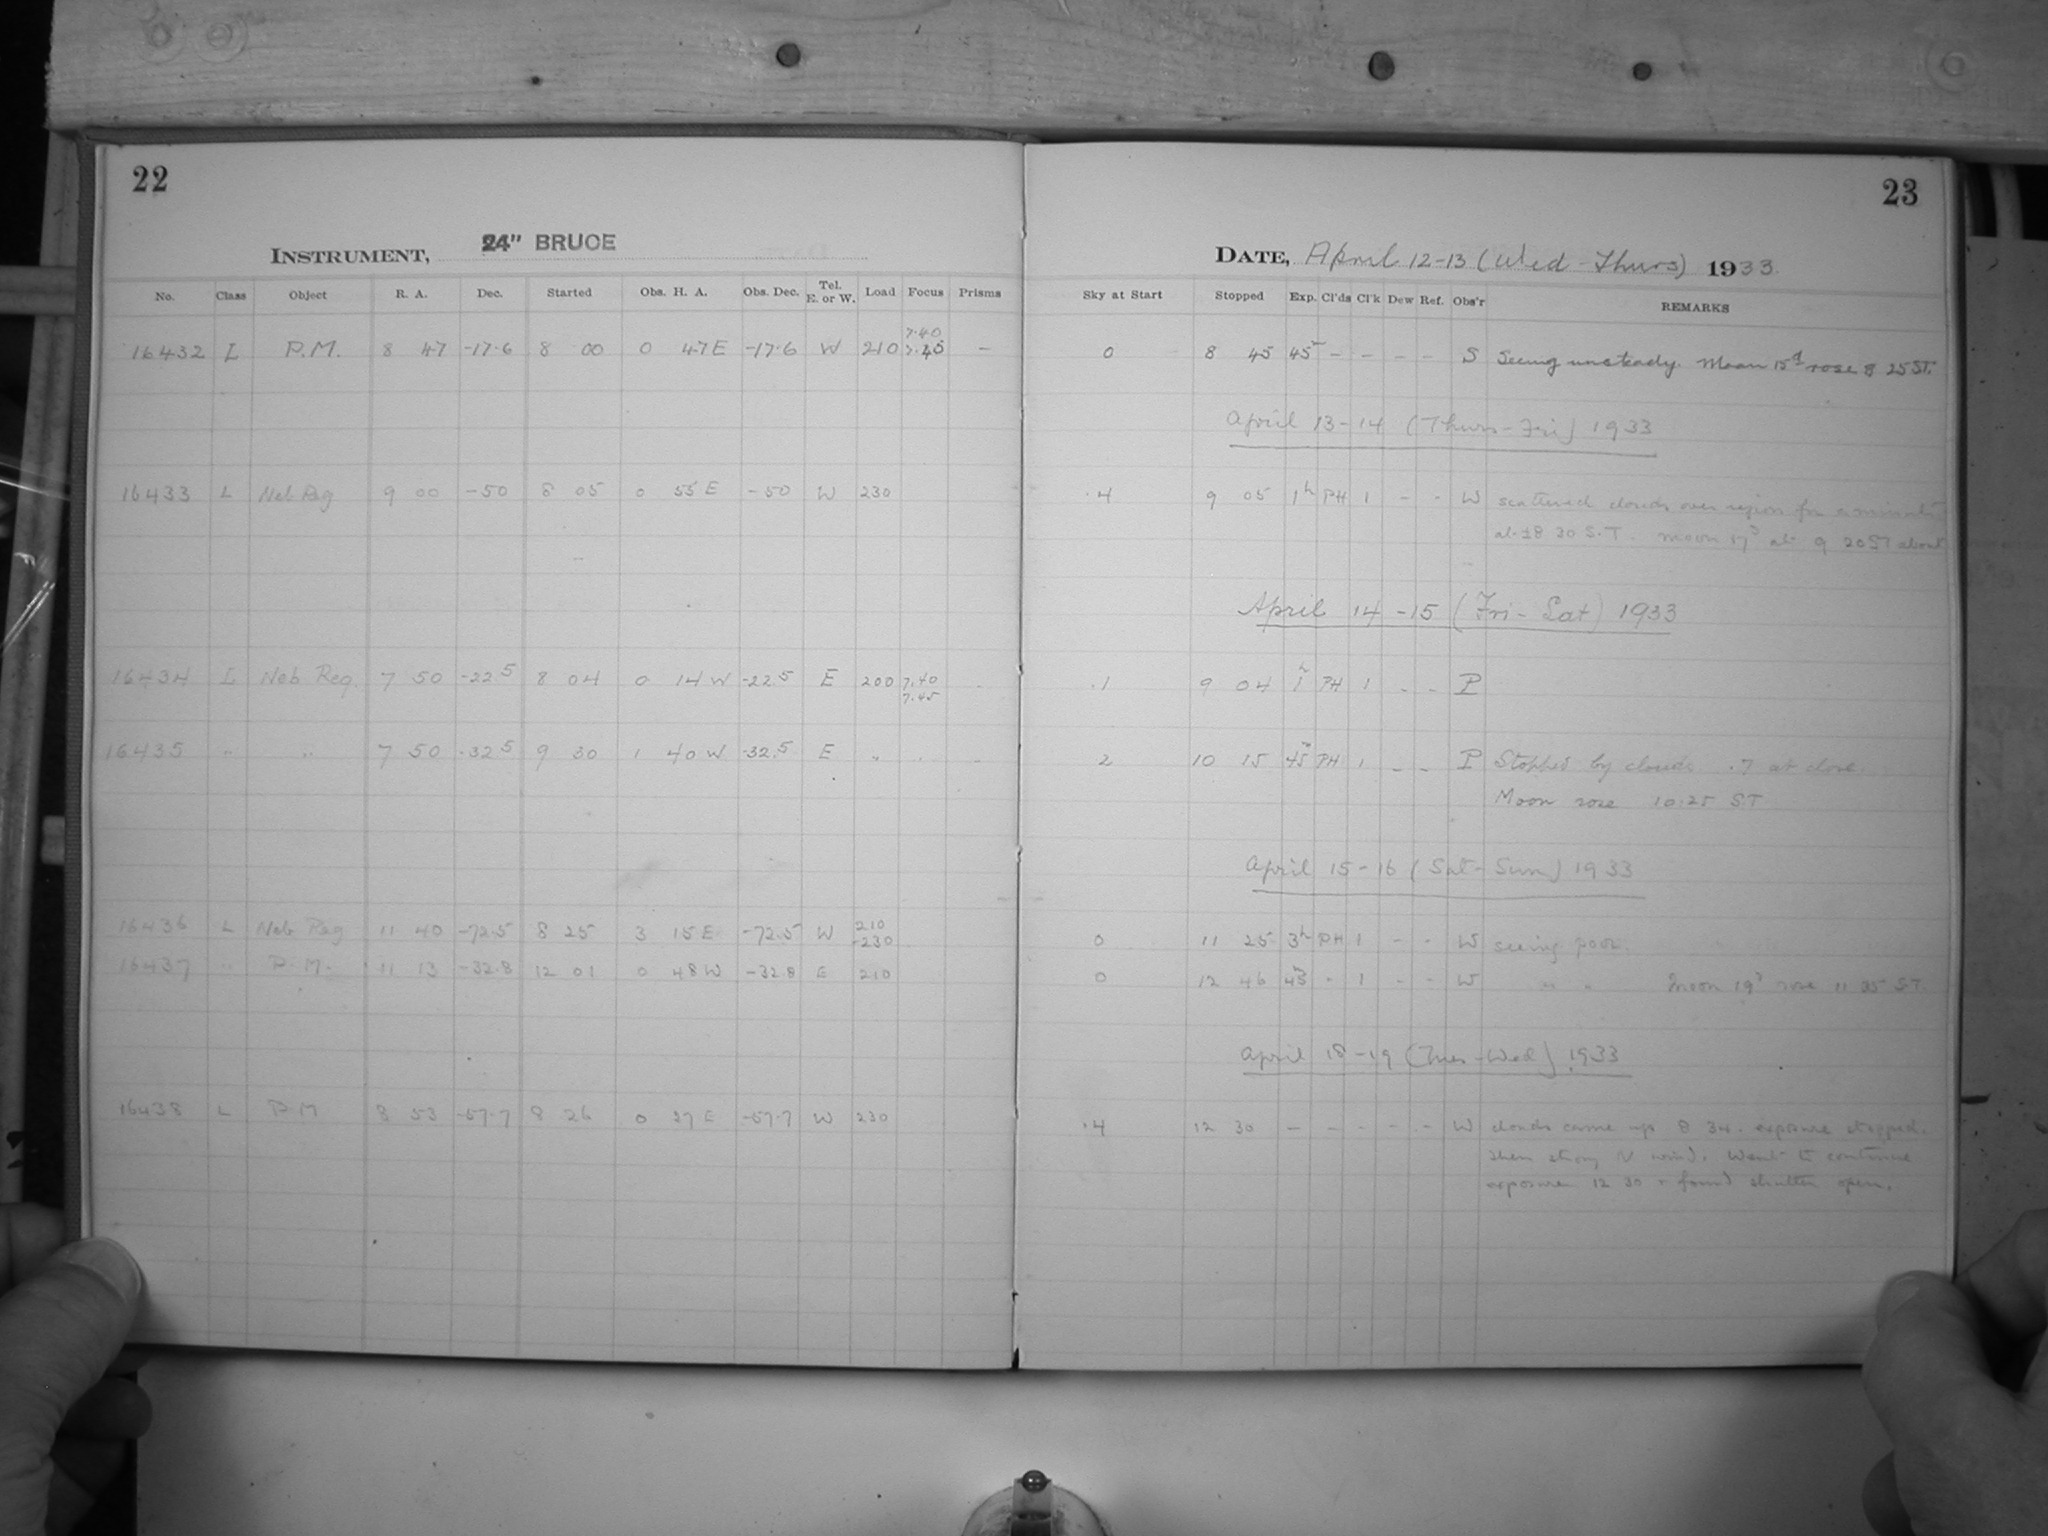 22
INSTRUMENT, 24" BRUCE
No. Class Object R. A. Dec. Started Obs. H. A. Obs. Dec. Tel. E. or W. Load Focus Prisms
7.40
16432 L P.M. 8 47 -17.6 8 00 0 47E -17.6 W 210 7.45 -
16433 L Neb Reg 9 00 -50 8 05 0 55 E -50 W 230
16434 L Neb Reg. 7 50 -22.5 8 04 0 14 W -22.5 E 200 7.40
7.45
16435 " " 7 50 -32.5 9 30 1 40 W -32.5 E "
16436 L Neb Reg 11 40 -72.5 8 25 3 15 E -72.5 W 210
-230
16437 " P.M. 11 13 -32.8 12 01 0 48 W -32.8 E 210
16438 L P M 8 53 -57.7 8 26 0 27 E -57.7 W 230
23
DATE, April 12-13 (Wed - Thurs) 1933.
Sky at Start Stopped Exp. Cl'ds Cl'k Dew Ref. Obs'r REMARKS
0 8 45 45m - - - - S Seeing unsteady. Moon 15d rose 8 25 ST.
April 13-14 (Thurs-Fri) 1933
.4 9 05 1h PH 1 - - W scattered clouds over region for a
at ±8 30 S.T. moon 17d at 9 20 ST about
April 14-15 (Fri-Sat) 1933
.1 9 04 1h PH 1 - - P
2 10 15 45m PH 1 - - P Stopped by clouds .7 at close.
Moon rose 10:25 ST
April 15-16 (Sat-Sun) 1933
0 11 25 3h PH 1 - - W seeing poor.
0 12 46 45m - 1 - - W " " Moon 19d rose 11 35 ST.
April 18-19 (Tues-Wed) 1933
.4 12 30 - - - - - W clouds came up 8 34. exposure stopped.
then strong N wind. Went to continue
exposure 12 30 + found shutter open.